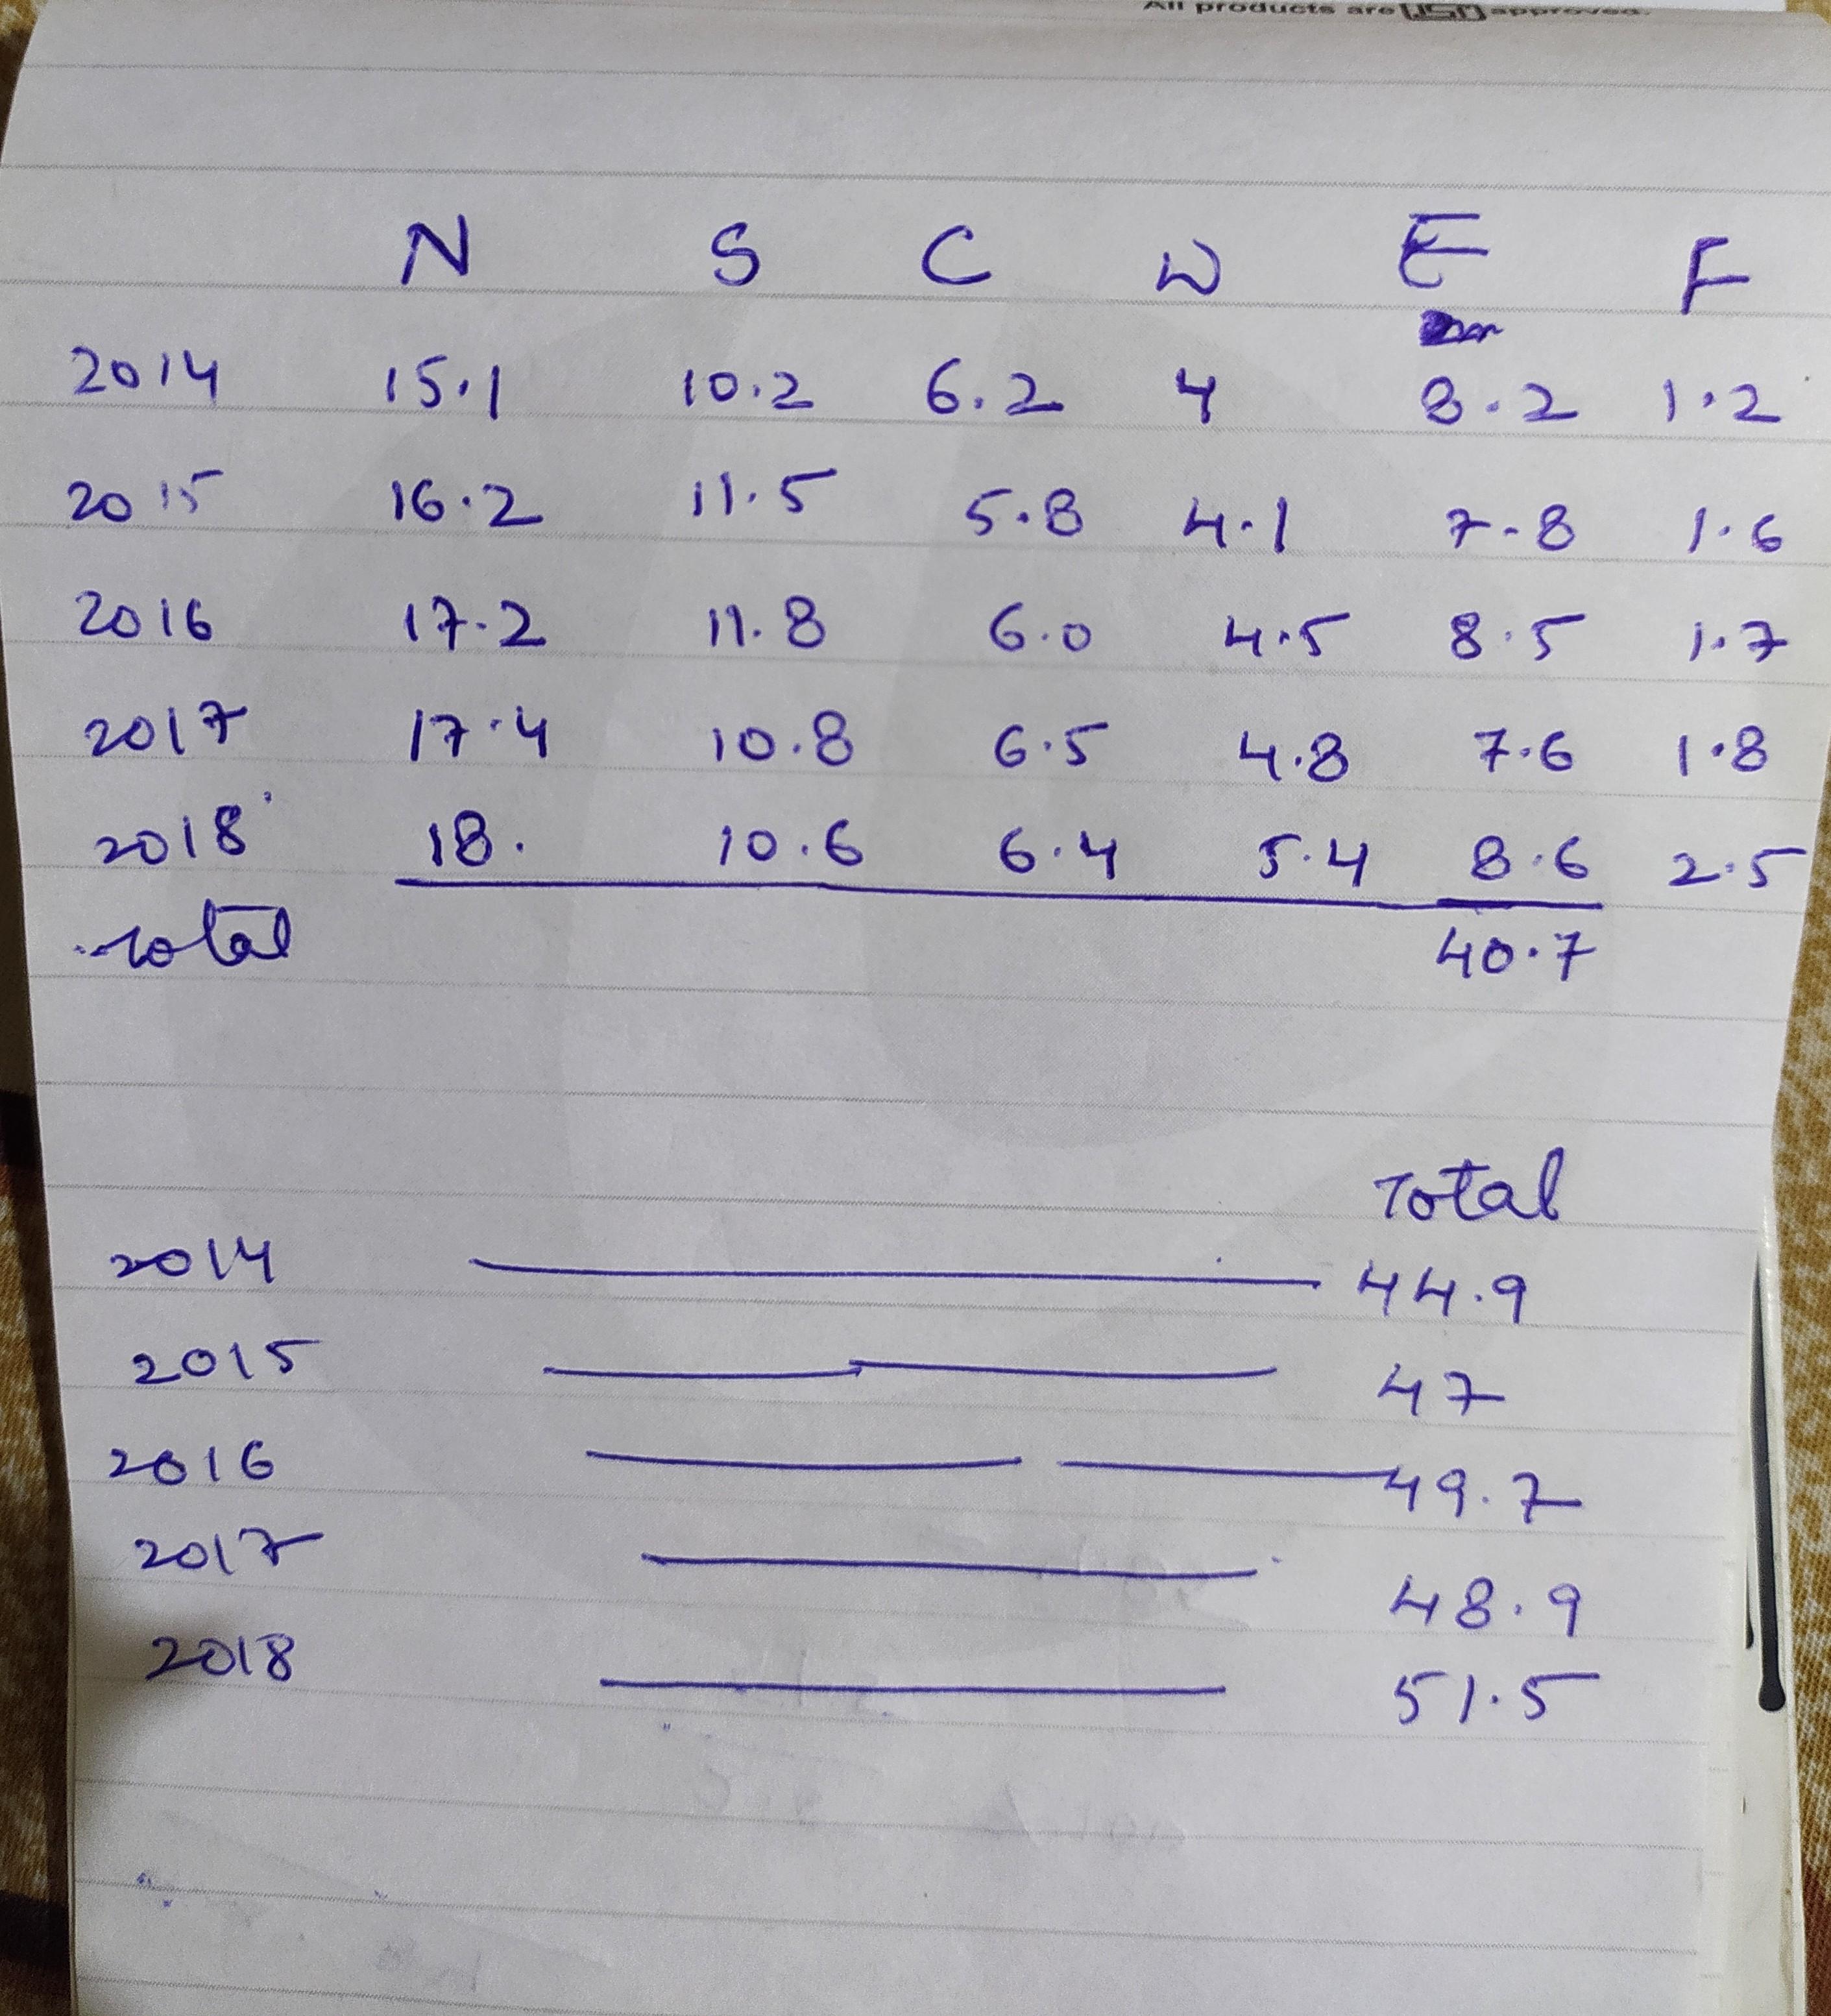 All products are JSD approved.
N S C W E F
2014 15.1 10.2 6.2 4 8.2 1.2
2015 16.2 11.5 5.8 4.1 7.8 1.6
2016 17.2 11.8 6.0 4.5 8.5 1.7
2017 17.4 10.8 6.5 4.8 7.6 1.8
2018 18. 10.6 6.4 5.4 8.6 2.5
Total 40.7
Total
2014 44.9
2015 47
2016 49.7
2017 48.9
2018 51.5